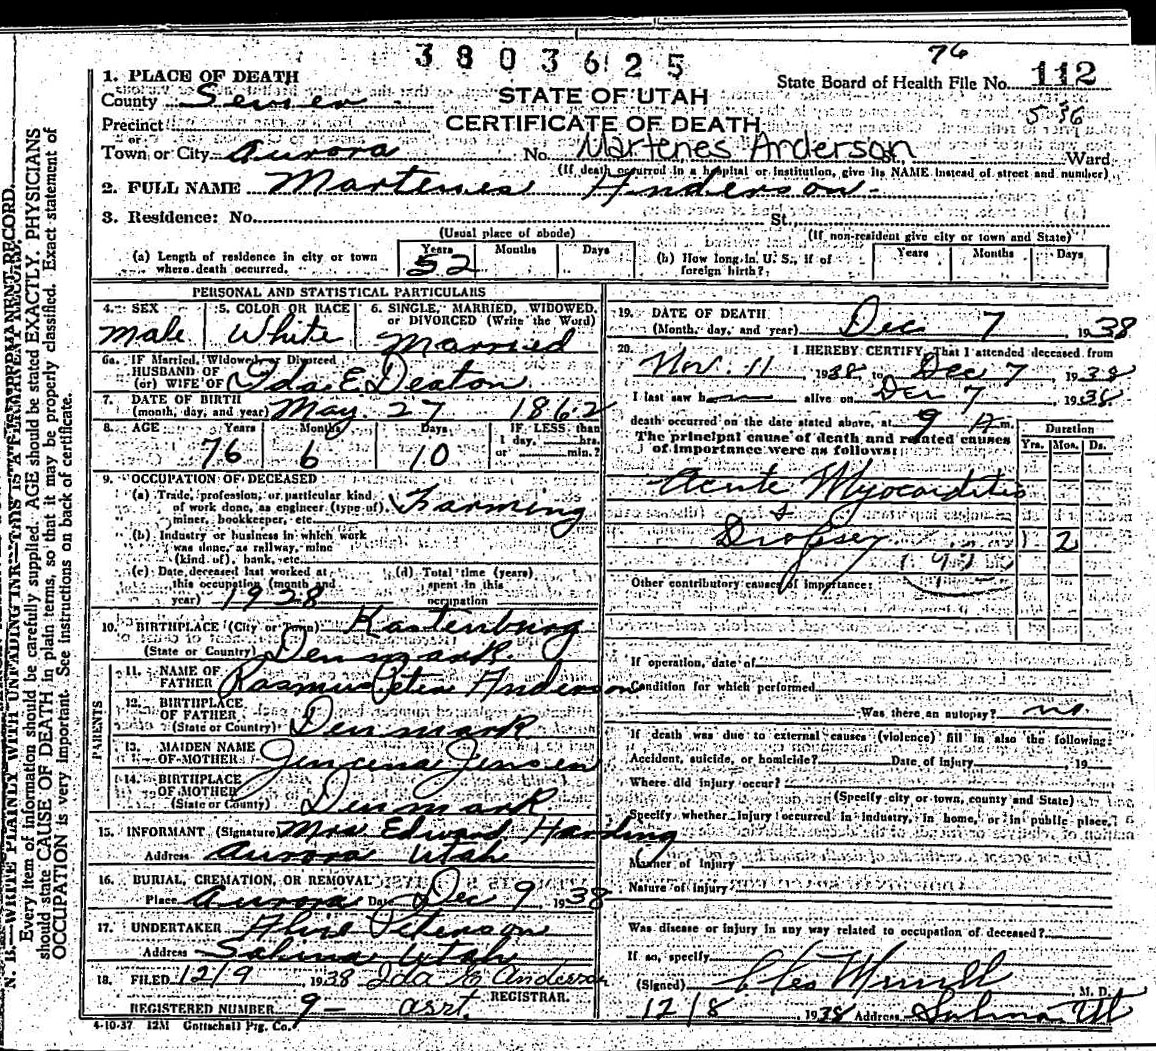 3803625
76
State Board of Health File No. 112
5 36
1. PLACE OF DEATH
County Sevier
STATE OF UTAH
Precinct
CERTIFICATE OF DEATH
or
Town or City Aurora No. Martenes Anderson Ward
(If death occurred in a hospital or institution, give its NAME instead of street and number)
2. FULL NAME Martenes Anderson
3. Residence: No. St.
(Usual place of abode) (If non-resident give city or town and State)
(a) Length of residence in city or town where death occurred. Years 52 Months Days
(b) How long in U. S., if of foreign birth? Years Months Days
PERSONAL AND STATISTICAL PARTICULARS
4. SEX Male
5. COLOR OR RACE White
6. SINGLE, MARRIED, WIDOWED, or DIVORCED (Write the Word) Married
6a. IF Married, Widowed, or Divorced
HUSBAND OF
(or) WIFE OF Ida E. Deaton
7. DATE OF BIRTH
(month, day, and year) May 27 1862
8. AGE Years Months Days IF LESS than
1 day, hrs.
76 6 10 or min.?
9. OCCUPATION OF DECEASED
(a) Trade, profession, or particular kind
of work done, as engineer (type of), Farming
miner, bookkeeper, etc.
(b) Industry or business in which work
was done, as railway, mine
(kind of), bank, etc.
(c) Date deceased last worked at
this occupation (month and
year) 1928
(d) Total time (years)
spent in this
occupation
10. BIRTHPLACE (City or Town) Kastenburg
(State or Country) Denmark
PARENTS
11. NAME OF
FATHER Rasmus Peter Anderson
12. BIRTHPLACE
OF FATHER
(State or Country) Denmark
13. MAIDEN NAME
OF MOTHER Jensena Jensen
14. BIRTHPLACE
OF MOTHER
(State or County) Denmark
15. INFORMANT (Signature) Mrs Edward Harding
Address Aurora Utah
16. BURIAL, CREMATION, OR REMOVAL
Place Aurora Date Dec 9, 1938
17. UNDERTAKER Peterson
Address Salina Utah
18. FILED 12/9, 1938 Ida E Anderson
REGISTRAR.
REGISTERED NUMBER 9 asst.
4-10-37 12M Gottschall Ptg. Co.
19. DATE OF DEATH
(Month, day, and year) Dec 7 1938
20. I HEREBY CERTIFY, That I attended deceased from
Nov. 11, 1938, to Dec 7, 1938
I last saw h alive on Dec 7, 1938
death occurred on the date stated above, at 9 A m.
The principal cause of death and related causes
of importance were as follows:
Duration
Yrs. Mos. Ds.
Acute Myocarditis
&
Dropsey 2
Other contributory causes of importance:
If operation, date of
Condition for which performed
Was there an autopsy? no
If death was due to external causes (violence) fill in also the following:
Accident, suicide, or homicide? Date of injury 19
Where did injury occur?
(Specify city or town, county and State)
Specify whether injury occurred in industry, in home, or in public place,
Manner of Injury
Nature of injury
Was disease or injury in any way related to occupation of deceased?
If so, specify
(Signed) Merrill, M. D.
12/8, 1938 Address Salina Ut
N. B.—WRITE PLAINLY WITH UNFADING INK—THIS IS A PERMANENT RECORD.
Every item of information should be carefully supplied. AGE should be stated EXACTLY. PHYSICIANS
should state CAUSE OF DEATH in plain terms, so that it may be properly classified. Exact statement of
OCCUPATION is very important. See instructions on back of certificate.